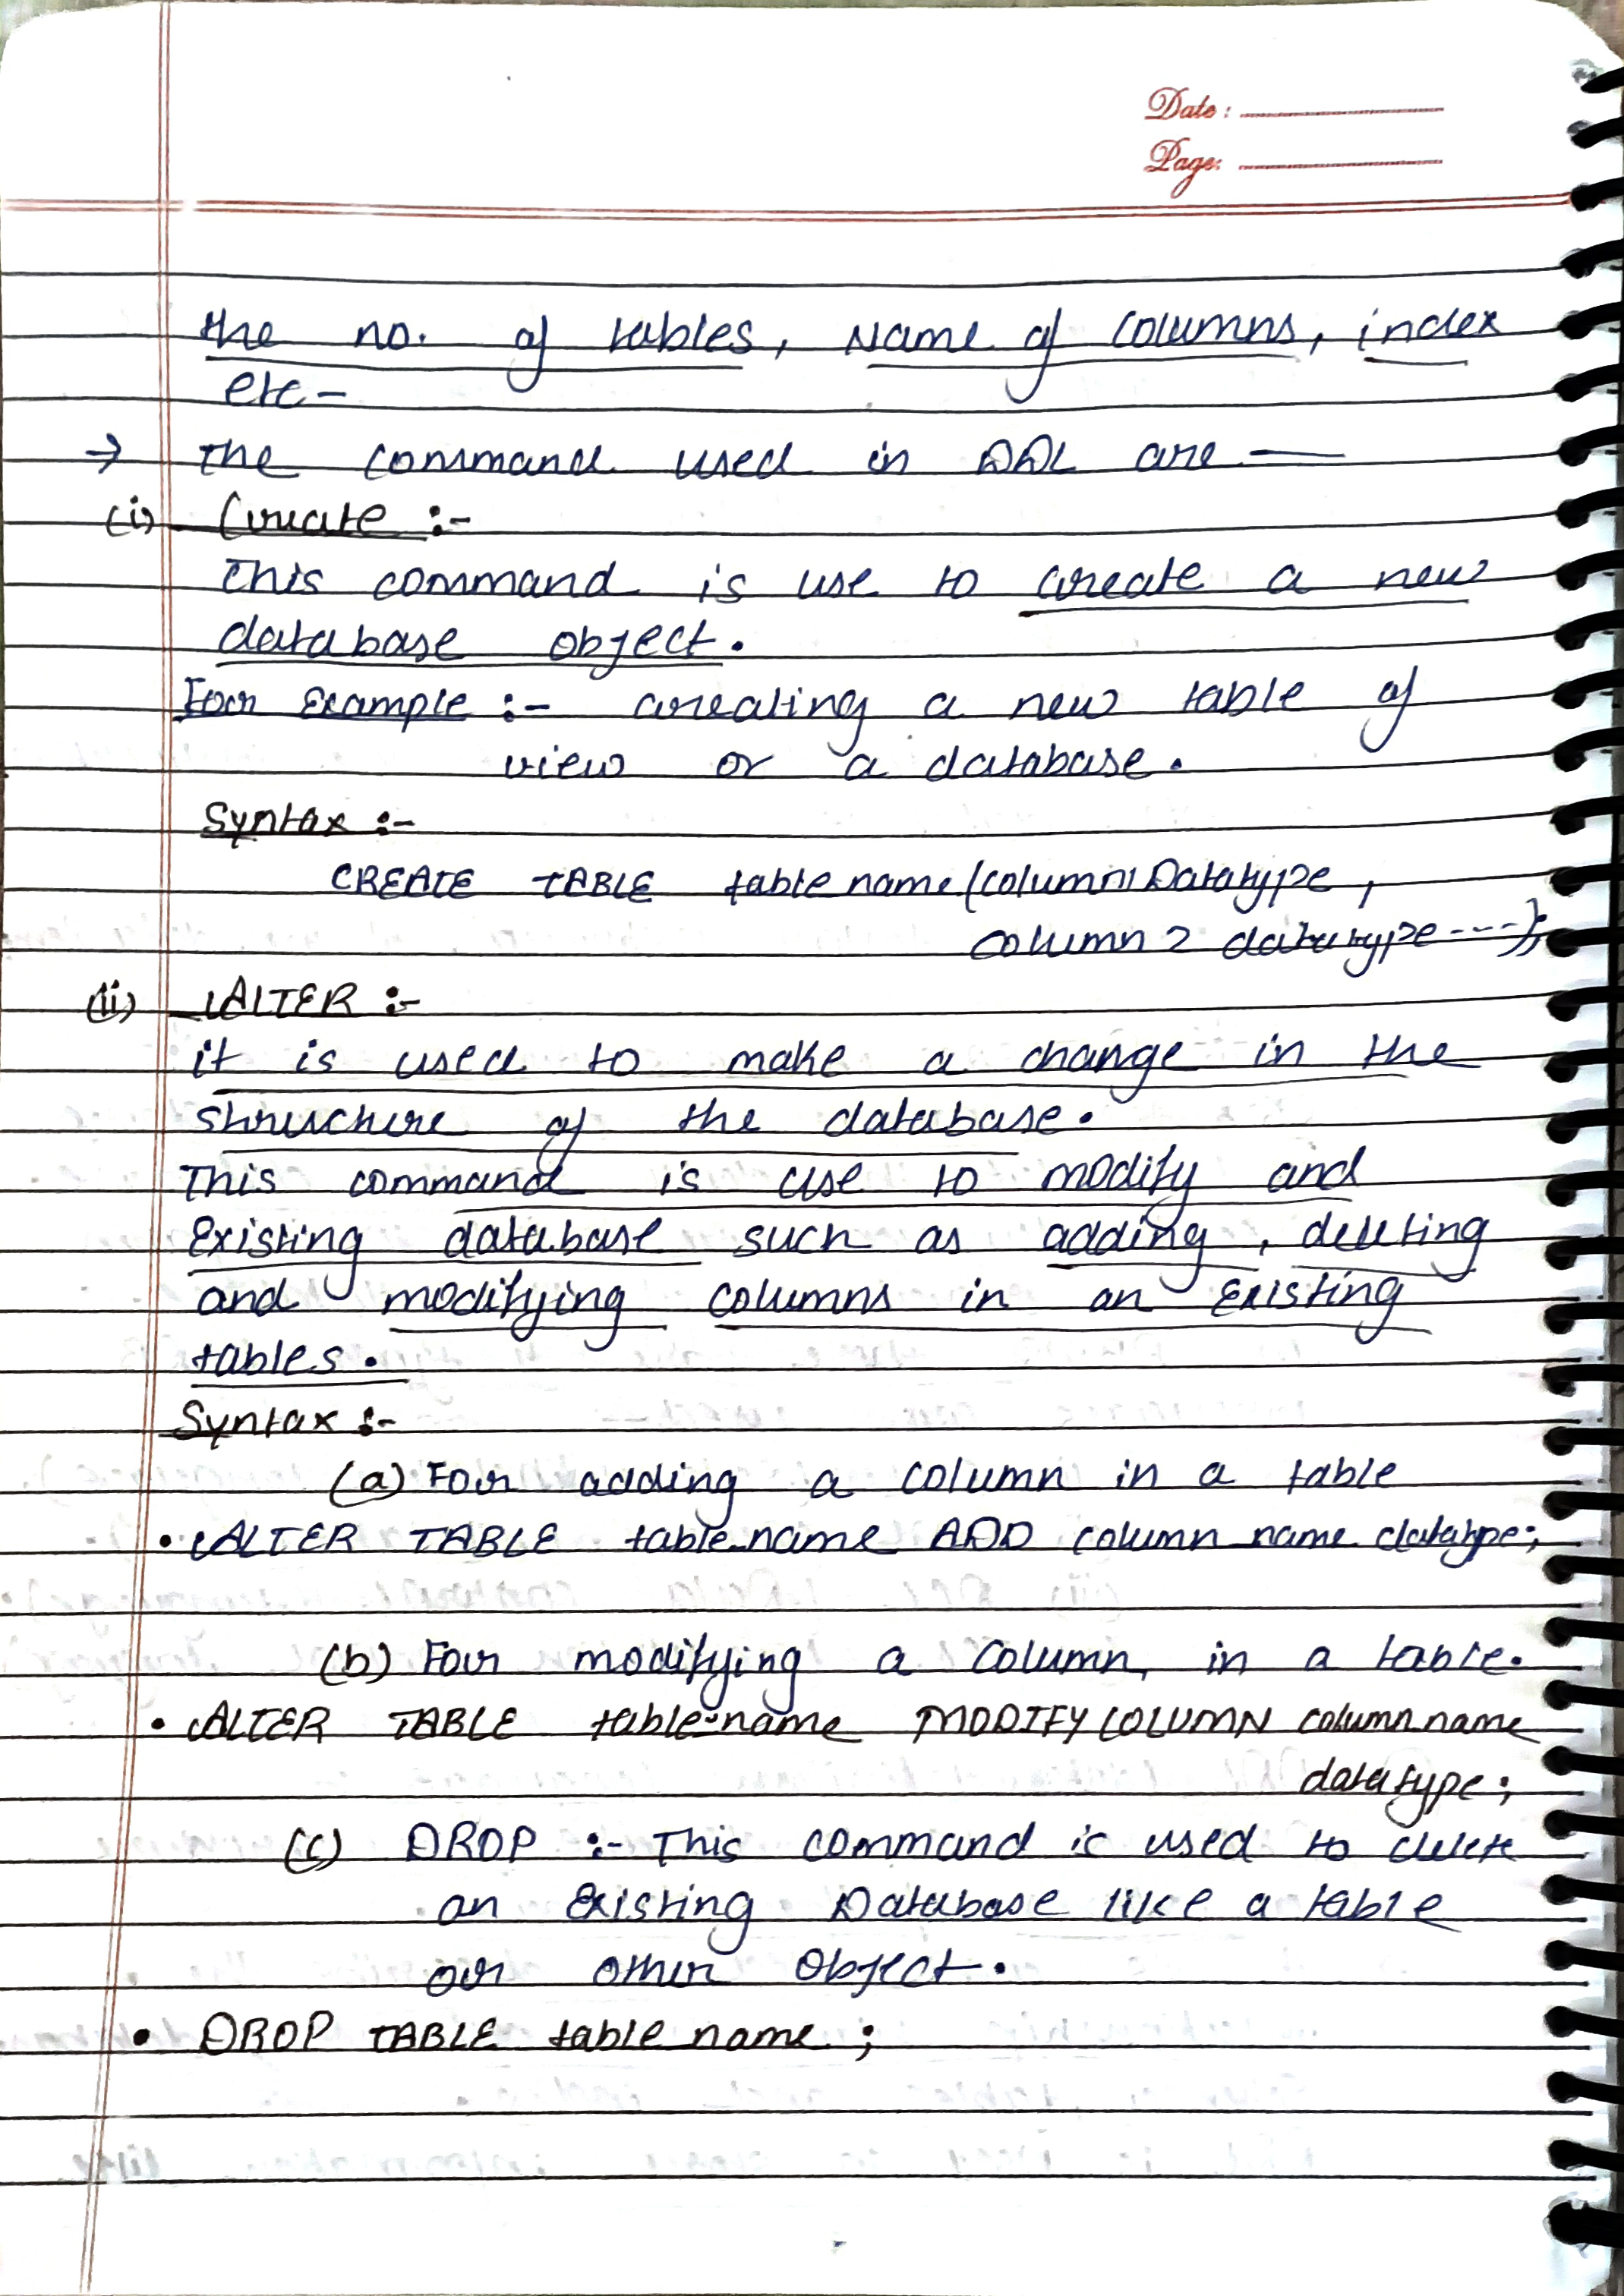 Date :
Page:
the no. of tables, Name of columns, index
etc -
→ The command used in DDL are —
(i) Create :-
This command is use to create a new
database object.
For Example :- creating a new table of
view or a database.
Syntax :-
CREATE TABLE table name (column1 Datatype,
column 2 datatype ----);
(ii) ALTER :-
it is used to make a change in the
structure of the database.
This command is use to modify and
Existing database such as adding, deleting
and modifying columns in an Existing
tables.
Syntax :-
(a) For adding a column in a table
• ALTER TABLE table_name ADD column name datatype;
(b) For modifying a column, in a table.
• ALTER TABLE table-name MODIFY COLUMN column name
datatype;
(c) DROP :- This command is used to delete
an Existing Database like a table
or other Object.
• DROP TABLE table name ;